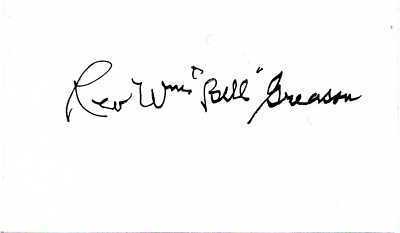 Rev Wm "Bill" Greason